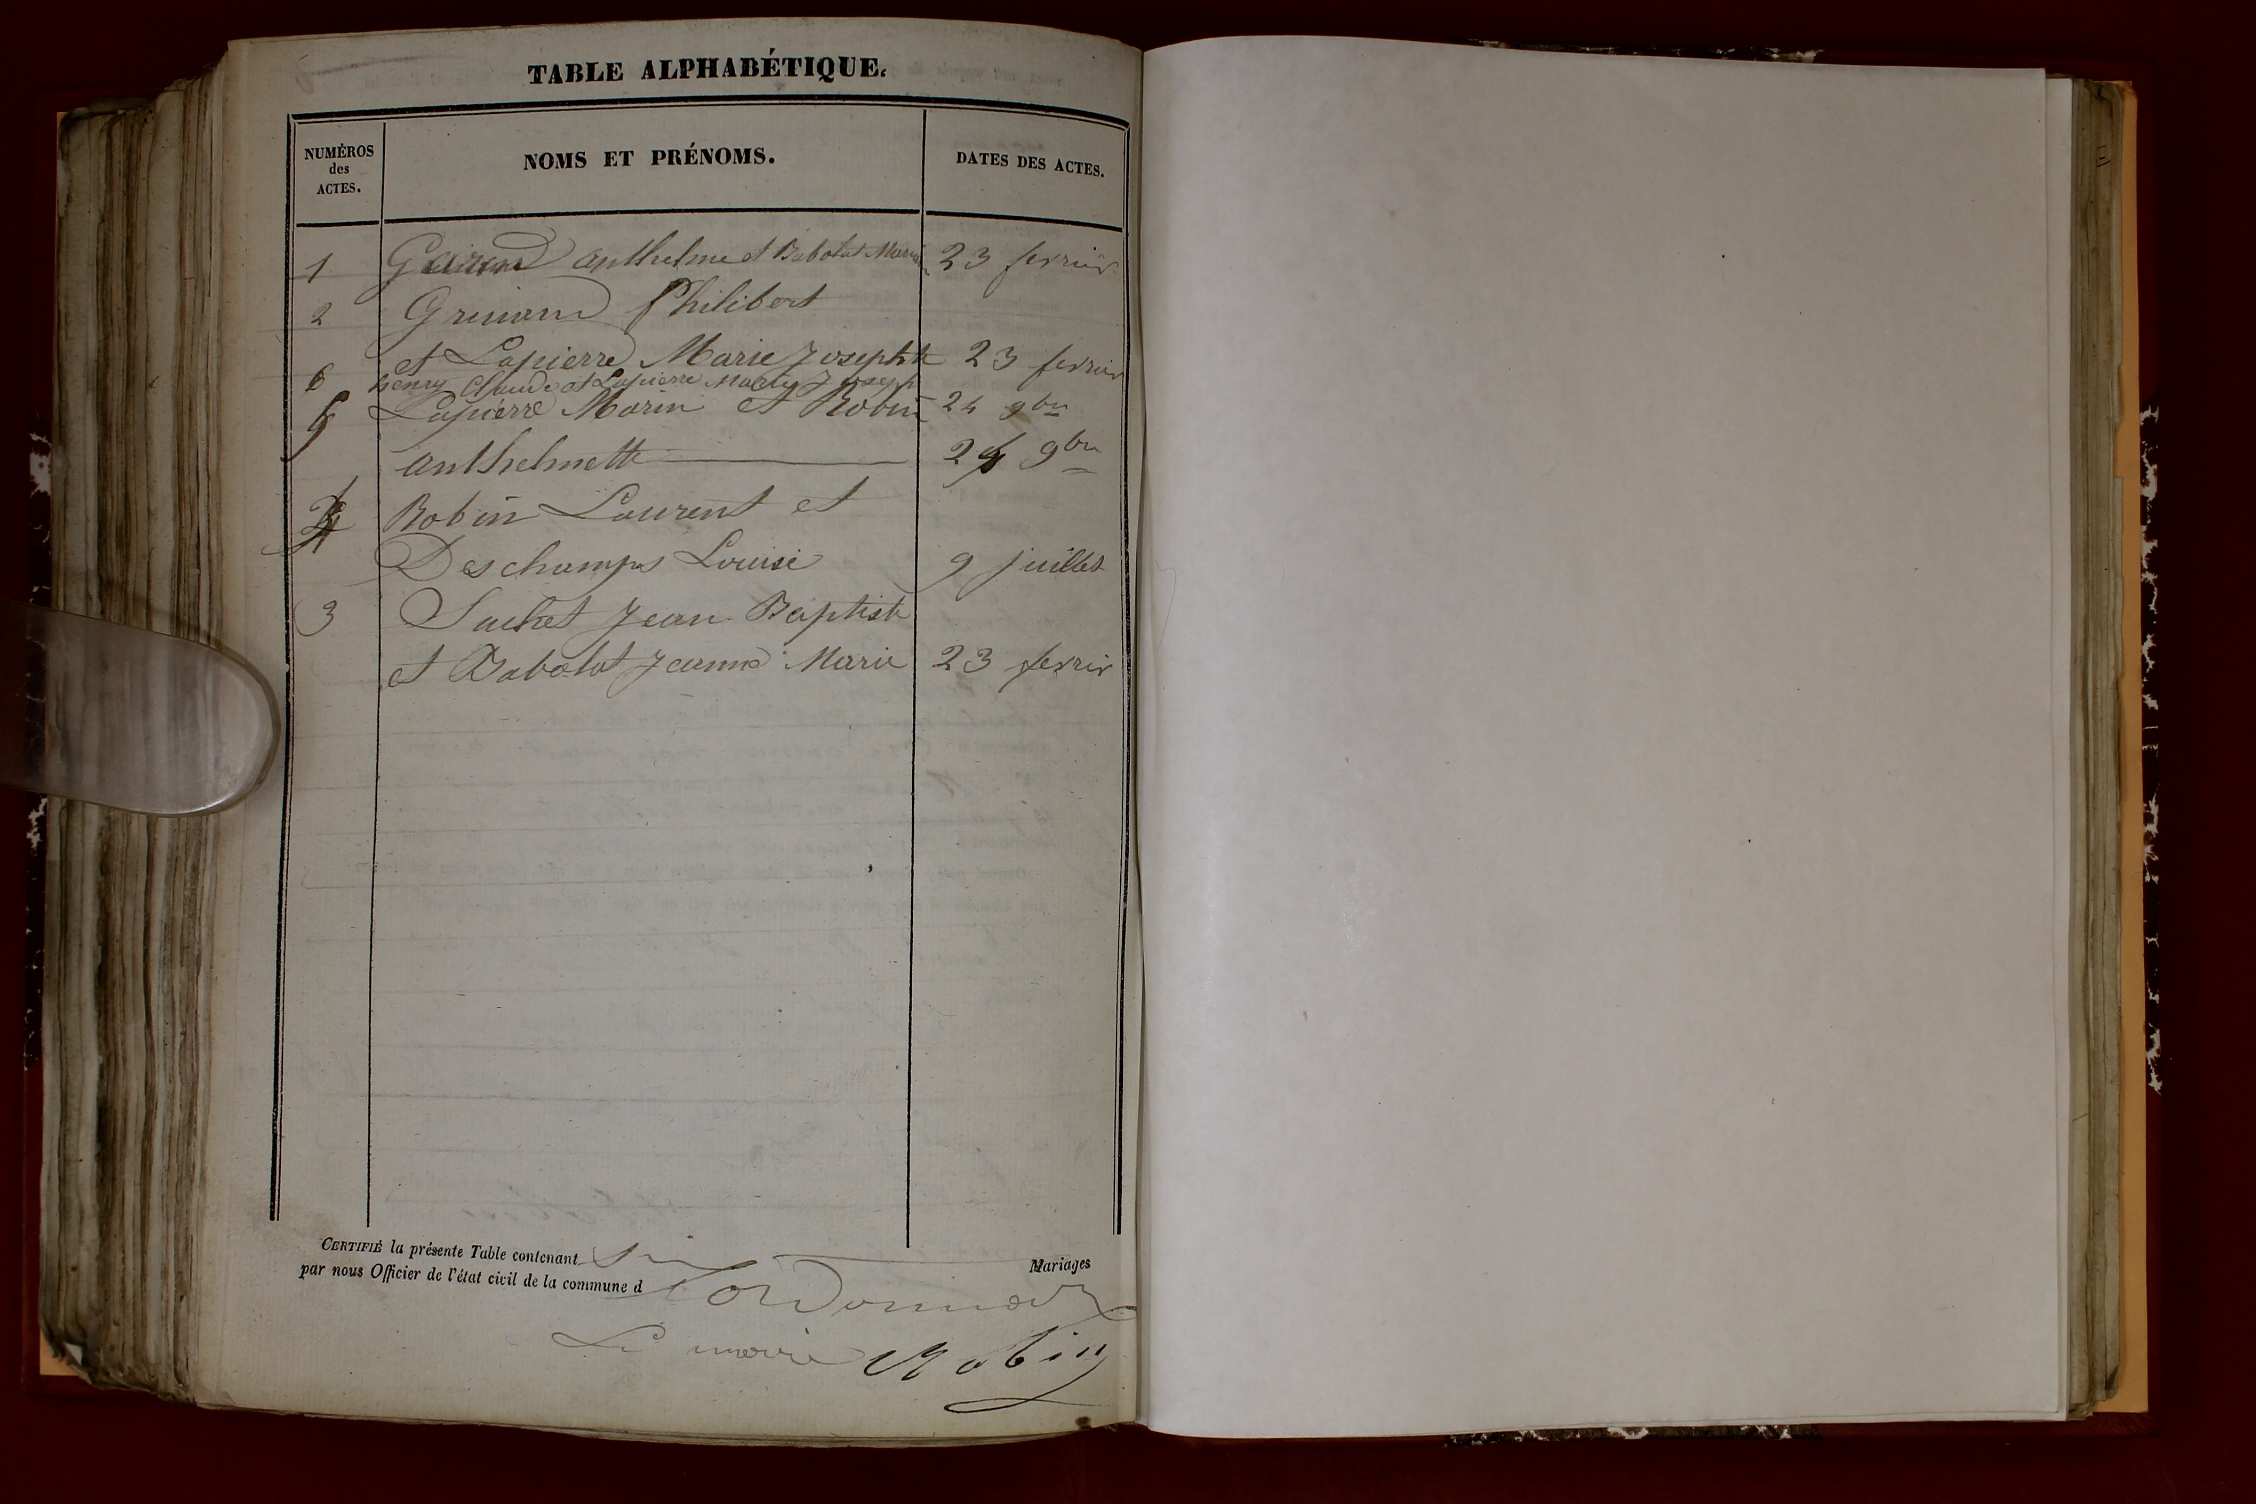 TABLE ALPHABÉTIQUE.
NUMÉROS des ACTES. NOMS ET PRÉNOMS. DATES DES ACTES.
1 anthelme et Babolat Marie 23 fevrier
2 Philibert
et Lapierre Marie Josephte 23 fevrier
6 henry Claude et Lapierre Marie Joseph
Lapierre Marin et Robin 24 9bre
anthelmette 24 9bre
4 Robin Laurent et
Deschamps Louise 9 juillet
3 Suchet Jean Baptiste
et Babolat Jeanne Marie 23 fevrier
CERTIFIÉ la présente Table contenant six Mariages
par nous Officier de l'état civil de la commune d
Le maire Robin